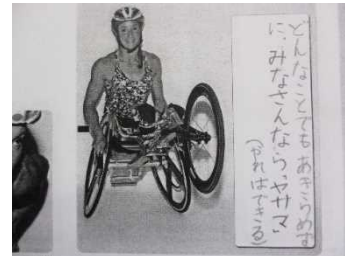 どんなことでもあきらめず
に、みなさんなら、ヤサマ」
（やればできる）